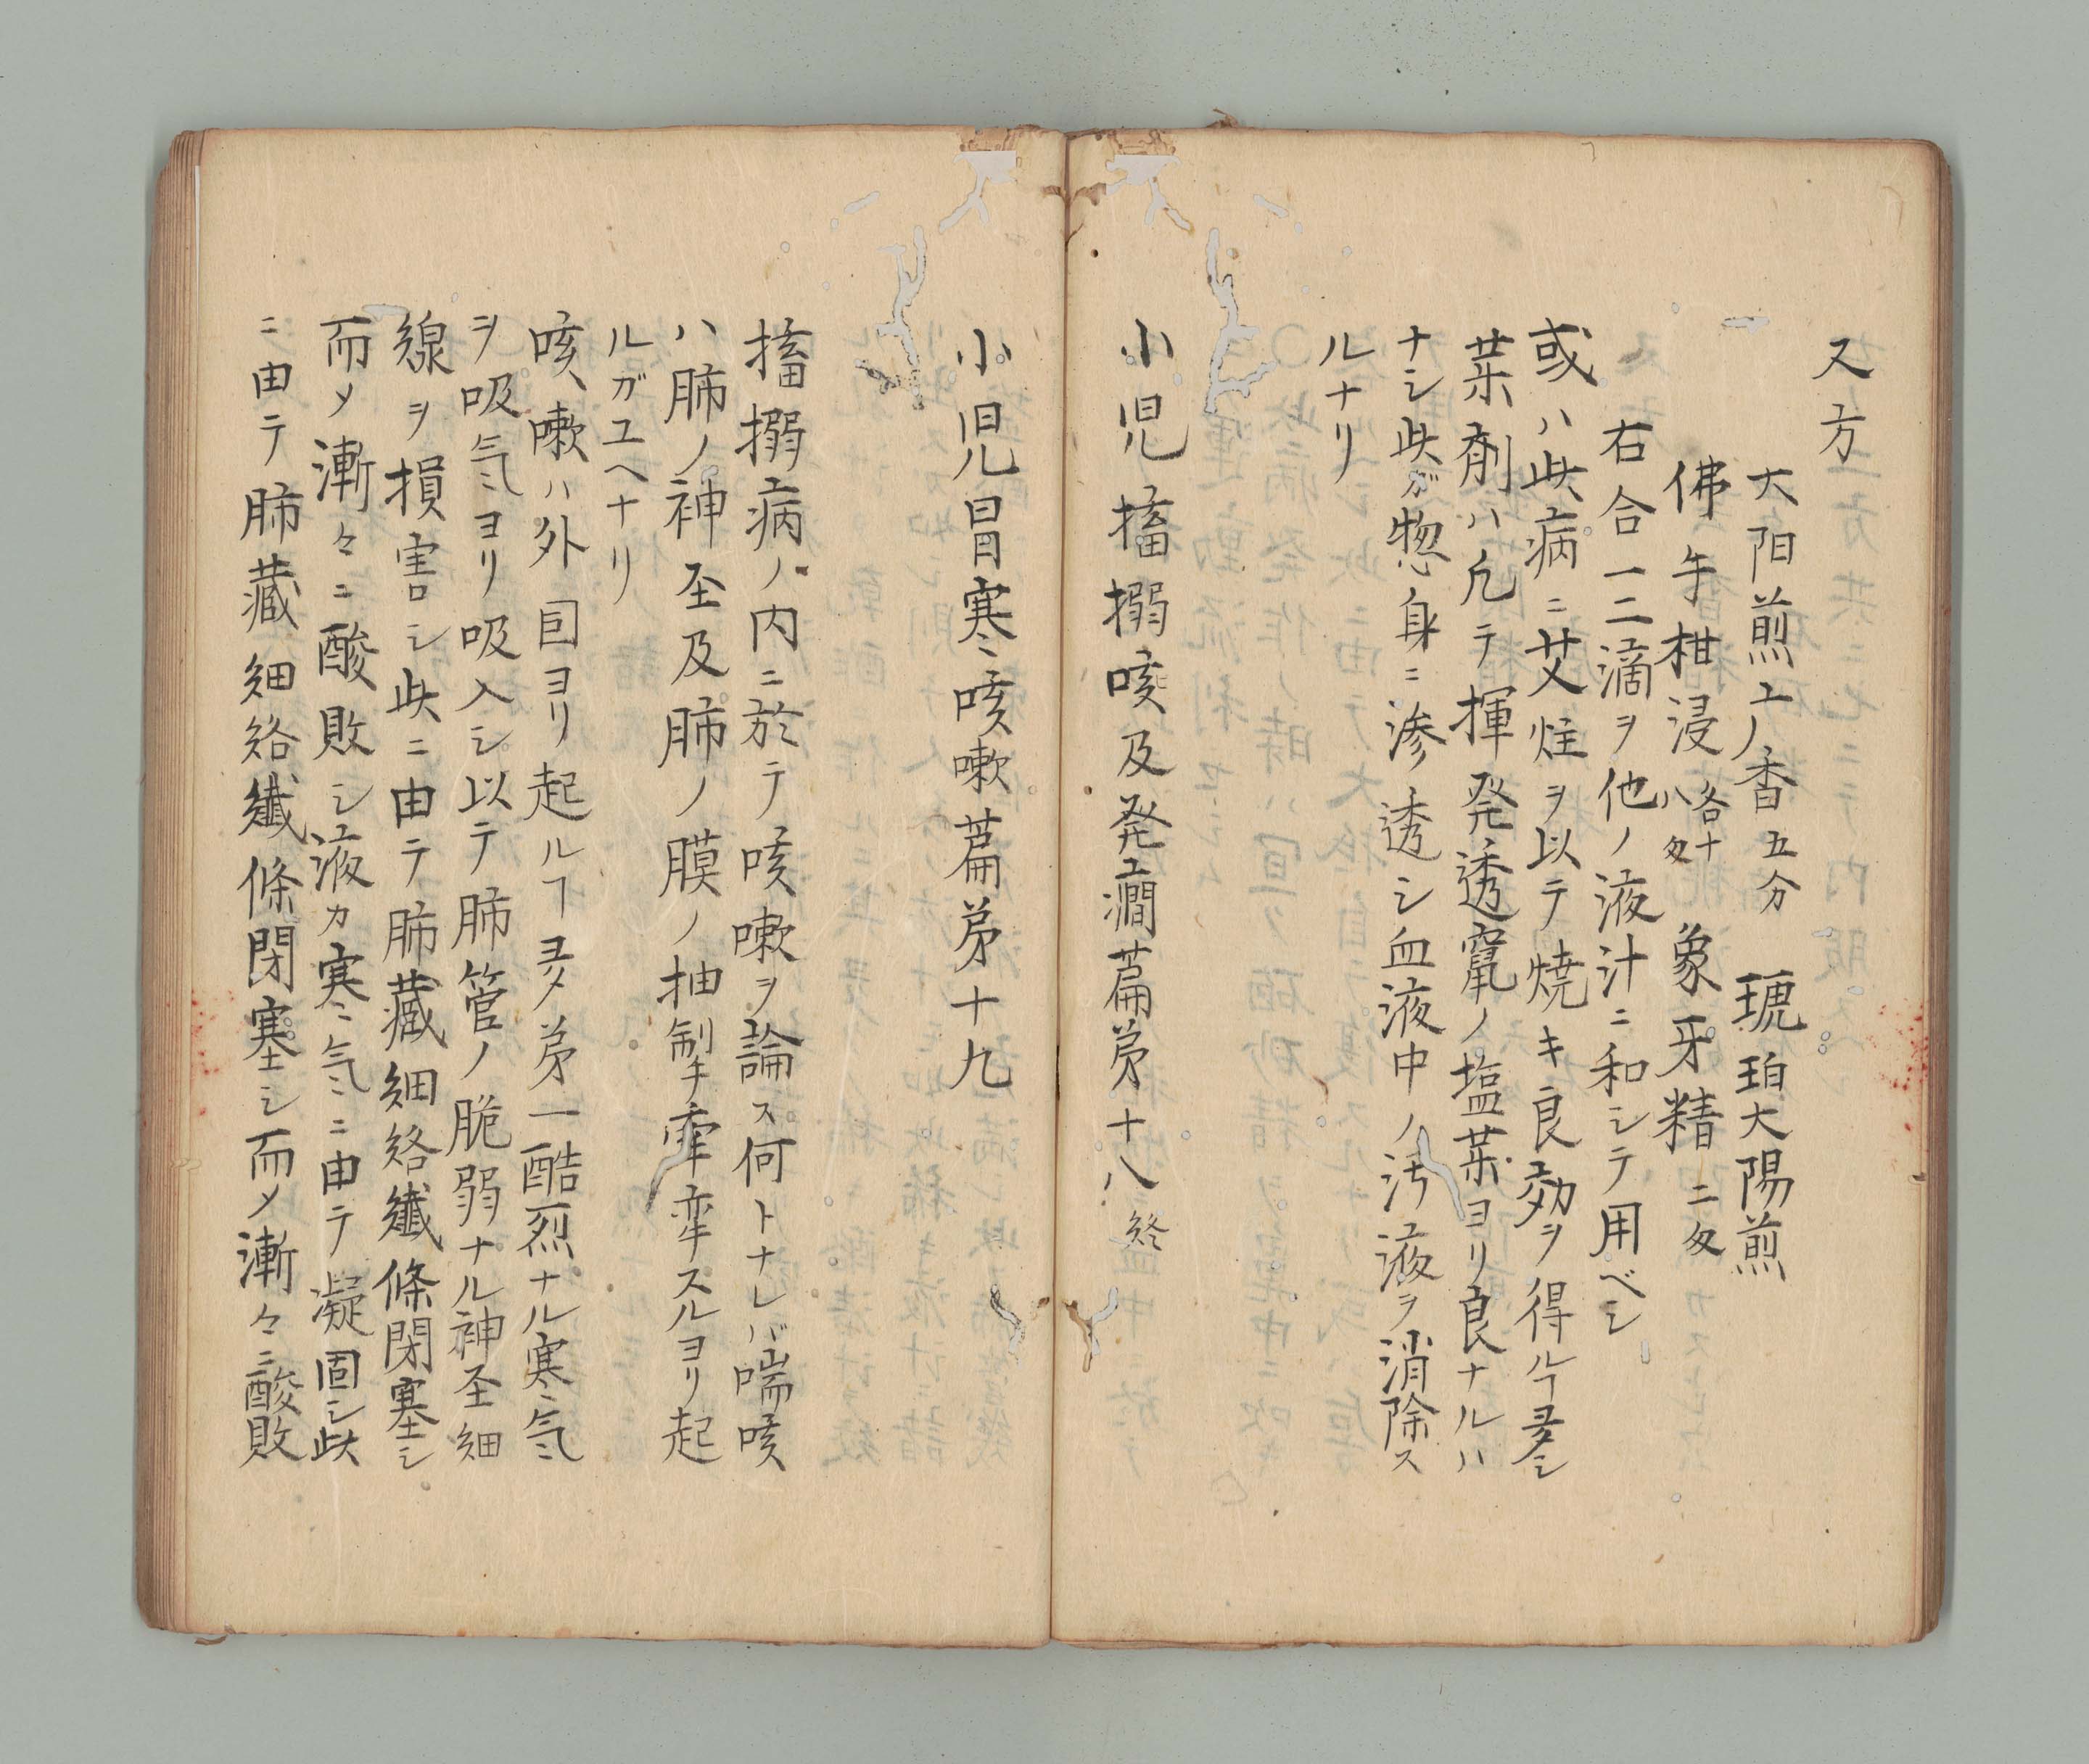 又方
大陽煎エノ香五分　琥珀大陽煎
佛手柑浸各十八匁　象牙精二匁
右合一二滴ヲ他ノ液汁ニ和シテ用ベシ
或ハ此病ニ艾炷ヲ以テ焼キ良効ヲ得ルヿヲヲシ
薬剤ハ凢テ揮発透竄ノ塩薬ヨリ良ナルハ
ナシ此ガ惣身ニ渗透シ血液中ノ汚液ヲ消除ス
ルナリ
小児搐搦咳及発癇篇第十八終
小児冒寒咳嗽篇第十九
搐搦病ノ内ニ於テ咳嗽ヲ論ス何トナレバ喘咳
ハ肺ノ神巠及肺ノ膜ノ抽掣牽牽スルヨリ起
ルガユヘナリ
咳嗽ハ外囙ヨリ起ルヿヲヲク第一酷烈ナル寒気
ヲ吸気ヨリ吸入シ以テ肺管ノ脆弱ナル神巠細
線ヲ損害シ此ニ由テ肺藏細絡纎條閉塞シ
而メ漸々ニ酸敗シ液カ寒気ニ由テ凝固シ此
ニ由テ肺藏細絡纎條閉塞シ而メ漸々ニ酸敗